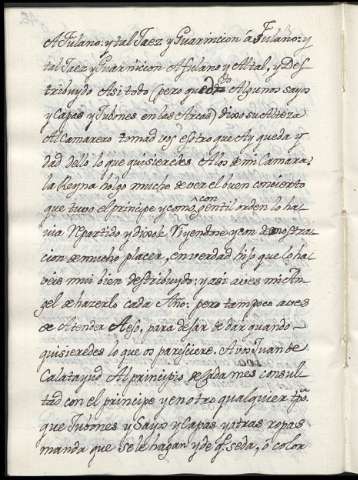 A fulano: y tal Jaez y Guarnicion â fulano: y
tal Jaez y Guarnicion A fulano y Al tal, y Des
tribuydo Asi todo (pero quedto Algunos sayos
y Capas y Jubones en las Arcas) dixo su Alteza
Al Camarero tomad vos esotro que Ay queda y
dad dello lo que quisieredes A los de mi Camara,
la Reyna holgo mucho de ver el buen concierto
que tuvo el principe y como con gentil orden lo ha
via Repartido y dixole Riyendose y con demostra
cion de mucho placer, en verdad hijo que lo ha
veis mui bien destribuydo; y asi aves mi An
gel de hazerlo cada Año. pero tampoco aves
de Atender A ejo, para dejar de dar quando
quisieredes lo que os pareciere. A vos Juan de
Calatayud Al principio de Cada mes consul
tad con el principe y en otro qualquier tpō.
que Jubones y Sayos y Capas y otras ropas
manda que se le hagan y de q̄. seda, ò color